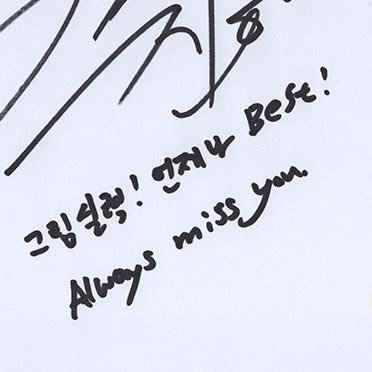 그림실력! 언제나 Best!
Always miss you.